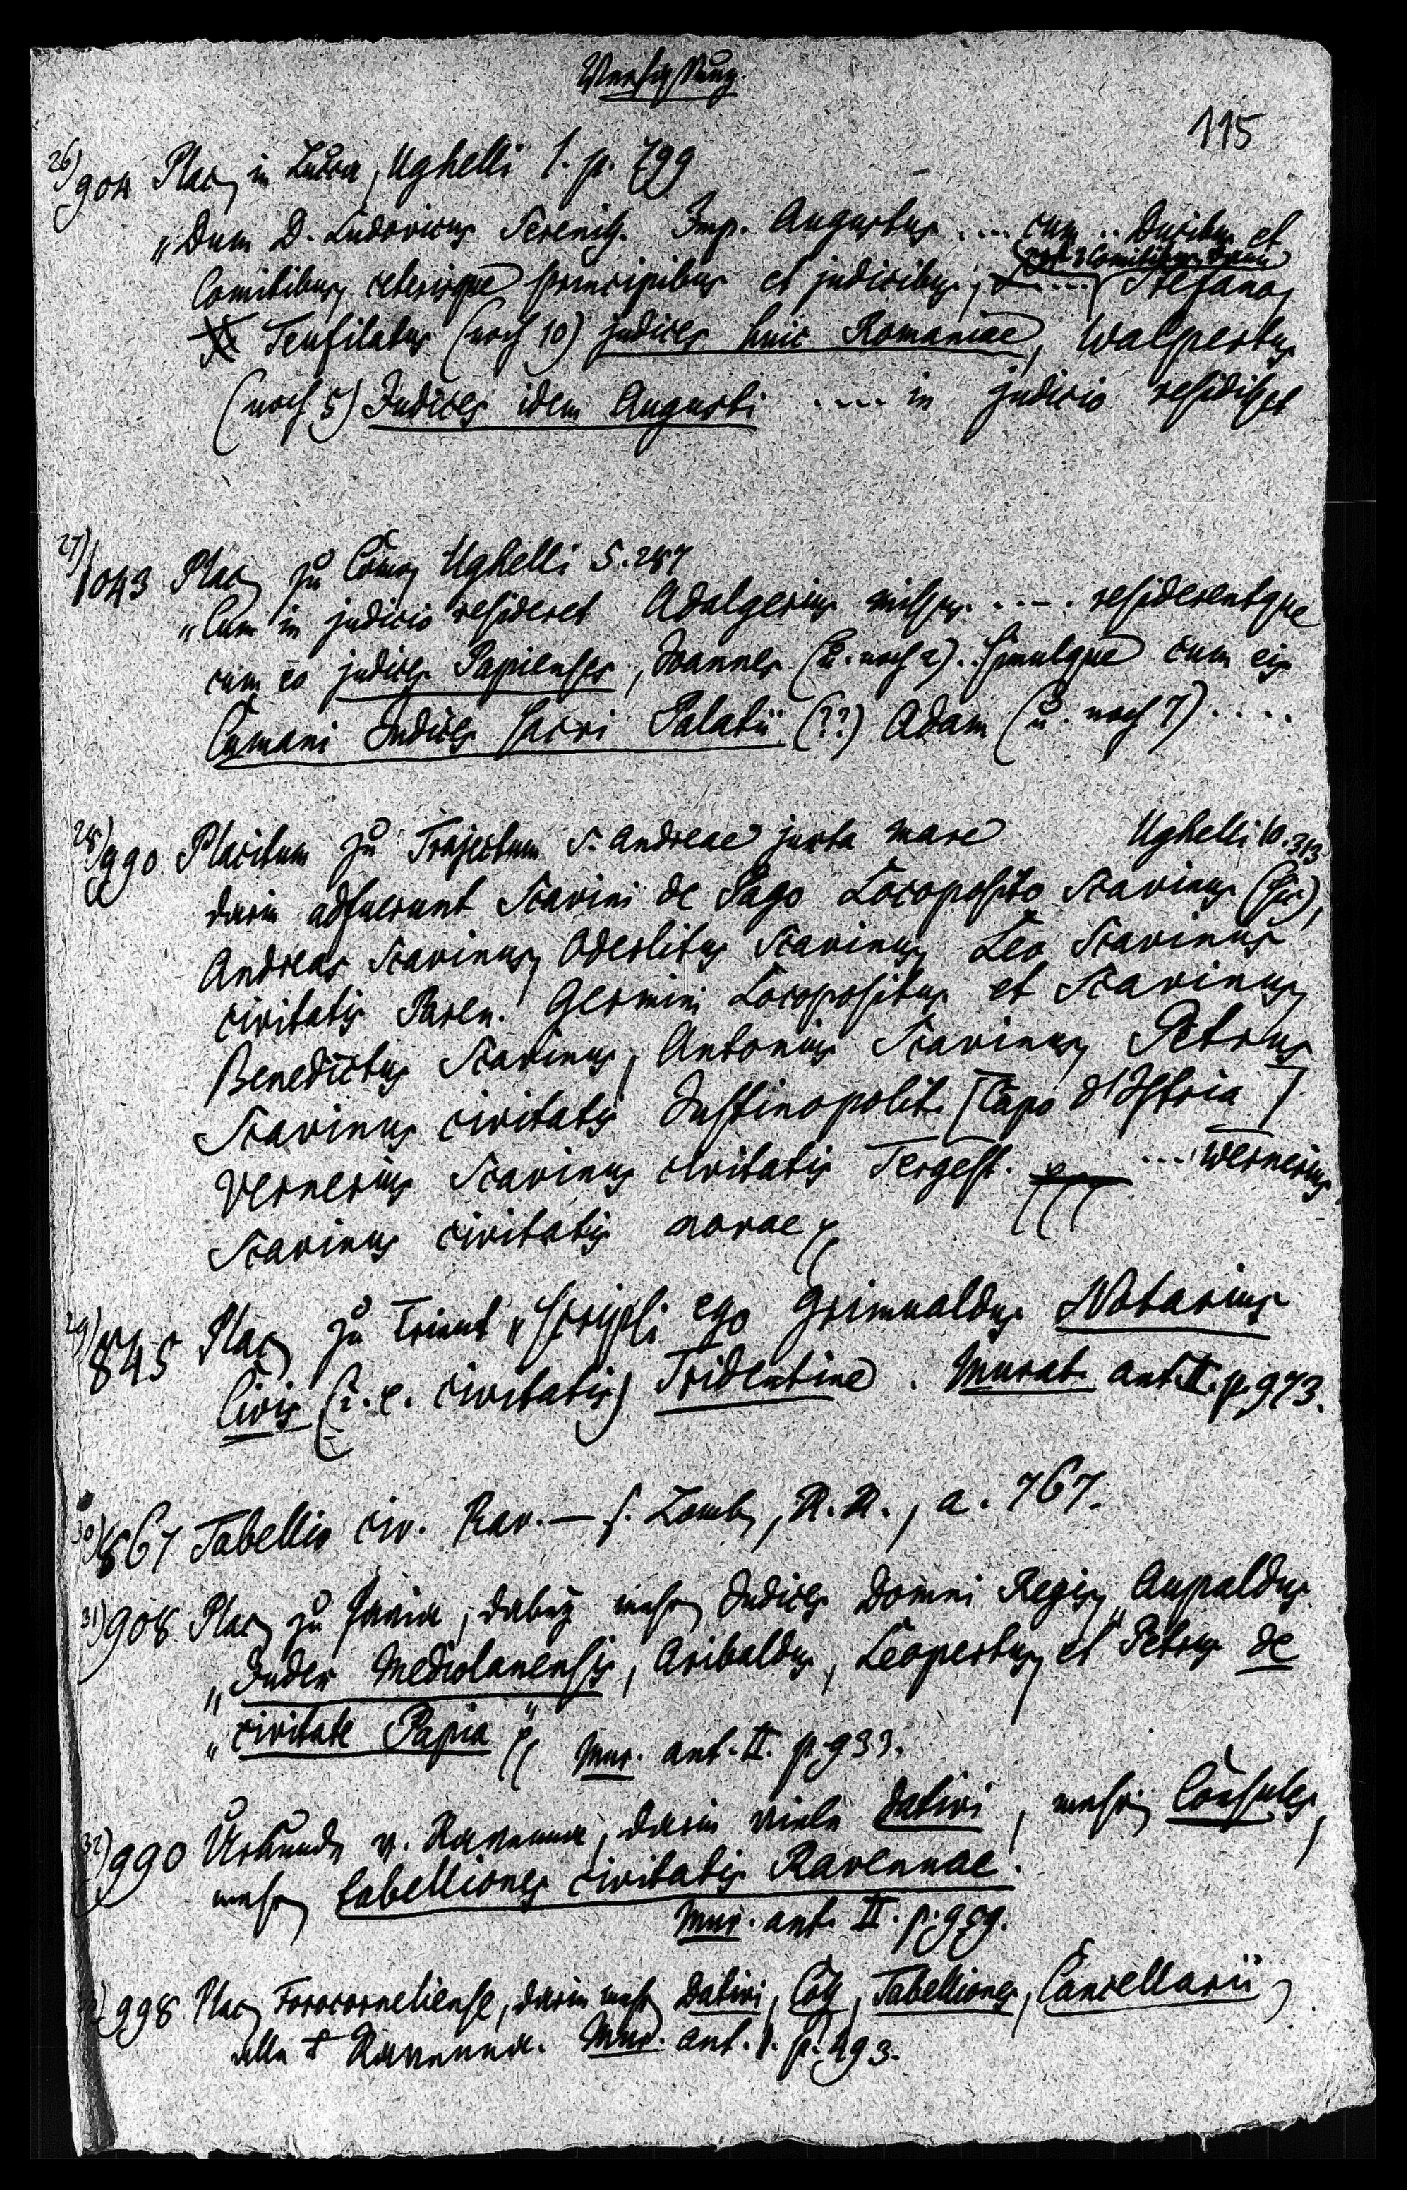 Verfassung.
115
26) 904 Plac. in Lucca, Ughelli 1. p. 799
„Dum D. Ludovicus Sereniss. Imp. Augustus .... cum .. Ducibus et
Comitibus ceterisque principibus et judicibus, .... Stefanos
Teufilatus (noch 10) judices huic Romaniae, Walpertus
(noch 5) Judices idem Augusti .... in judicio residisset
27) 1043 Plac. zu Como, Ughelli 5. 287
„Cum in judicio resideret Adalgerius missus .... residerentque
cum eo judices Papienses, Joannes (u. noch 2) .. simulque cum eis
Cumani Judices sacri Palatii (??) Adam (u. noch 7) ....
28) 990 Placitum zu Trajectum S. Andreae juxta mare Ughelli 10. 313
darin adfuerunt Scavini de Pago Locoposito Scavinus (sic),
Andreas Scavinus, Oderlitus Scavinus, Leo Scavinus
civitatis Paren. Germini Locopositus et Scavinus,
Benedictus Scavinus, Antonius Scavinus, Petrus
Scavinus civitatis Justinopolit. [Capo d'Istria]
Vernerius Scavinus civitatis Tergest. .... Wernerius
Scavinus civitatis novae
29) 845 Plac. zu Trient „scripsi ego Grimualdus Notarius
Civis (i. e. civitatis) Tridentine. Murat. ant. II. p. 973.
30) 867 Tabellio civ. Rav. — s. Lomb., R. R., a. 767.
31) 908 Plac. zu Pavia, dabey mehr. Judices Domni Regis, Aupaldus
„Judex Mediolanensis, Aribaldus, Leopertus, et Petrus de
„civitate Papia" Mur. ant. II. p. 933.
32) 990 Urkunde v. Ravenna, darin viele dativi, mehr. Consules,
mehr. tabelliones civitatis Ravennae.
Mur. ant. II. p. 959.
998 Plac. Forocorneliense, darin mehr. Dativi, Coss, Tabelliones, Cancellarii,
alle v Ravenna. Mur. ant. 1. p. 493.